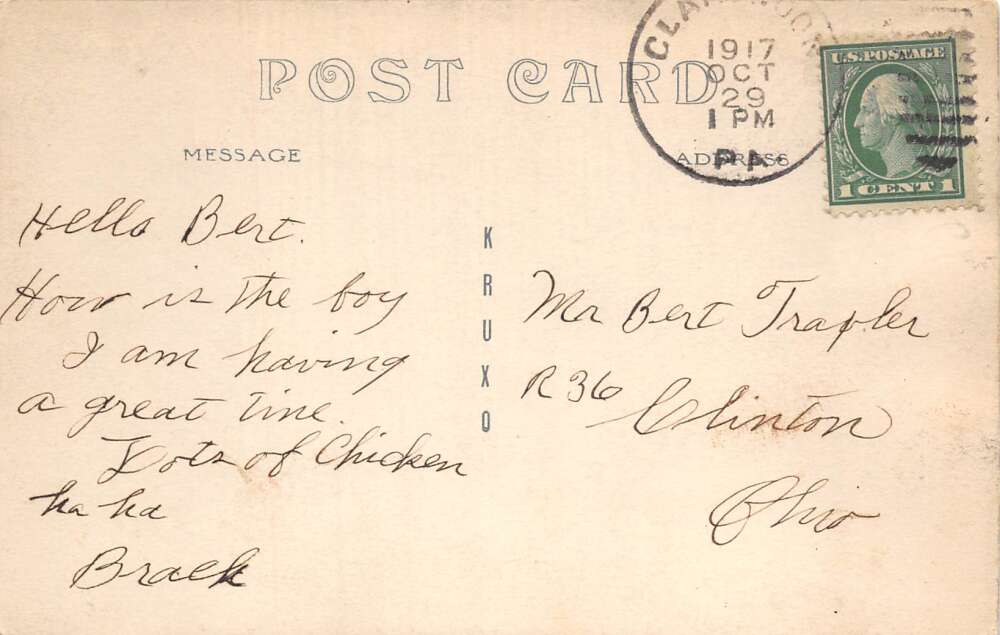 POST CARD
1917
OCT
29
1 PM
PA.
U.S. POSTAGE
1 CENT 1
MESSAGE
ADDRESS
Hello Bert.
How is the boy
I am having
a great time.
Lots of Chicken
ha ha
Brack
KRUXO
Mr Bert Trapler
R 36
Clinton
Ohio